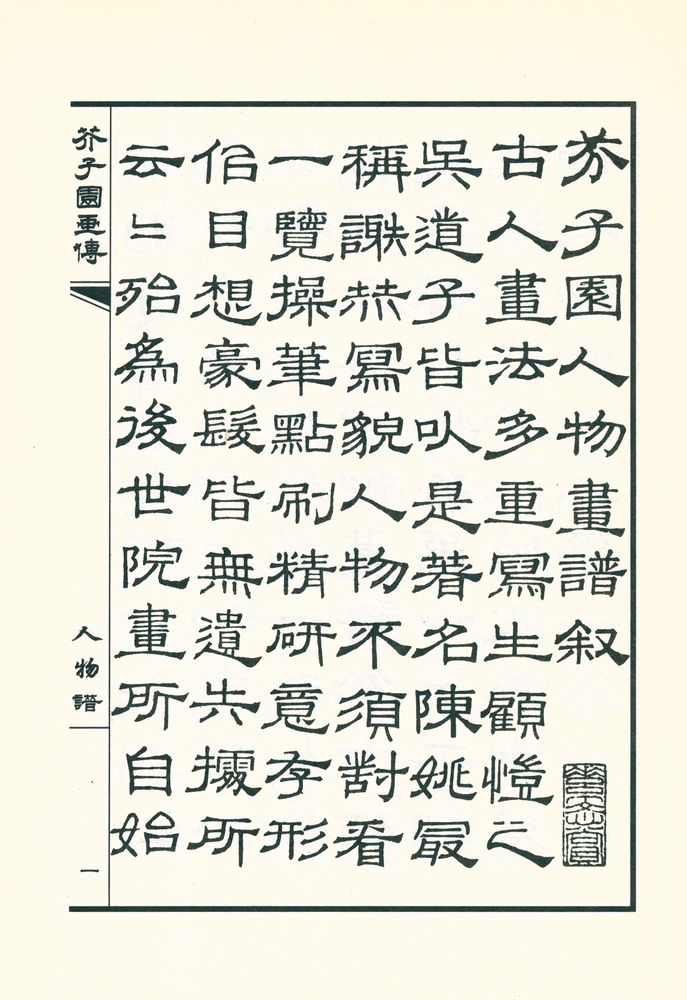 芥子園人物畫譜叙
古人畫法多重冩生顧愷之
吳道子皆㕥是著名陳姚冣
稱謝赫冩貌人物不須對看
一覽操筆點刷精研意存形
佀目想豪髮皆無遺失據所
云〻殆為後世院畫所自始
芥子園画傳
人物譜
一